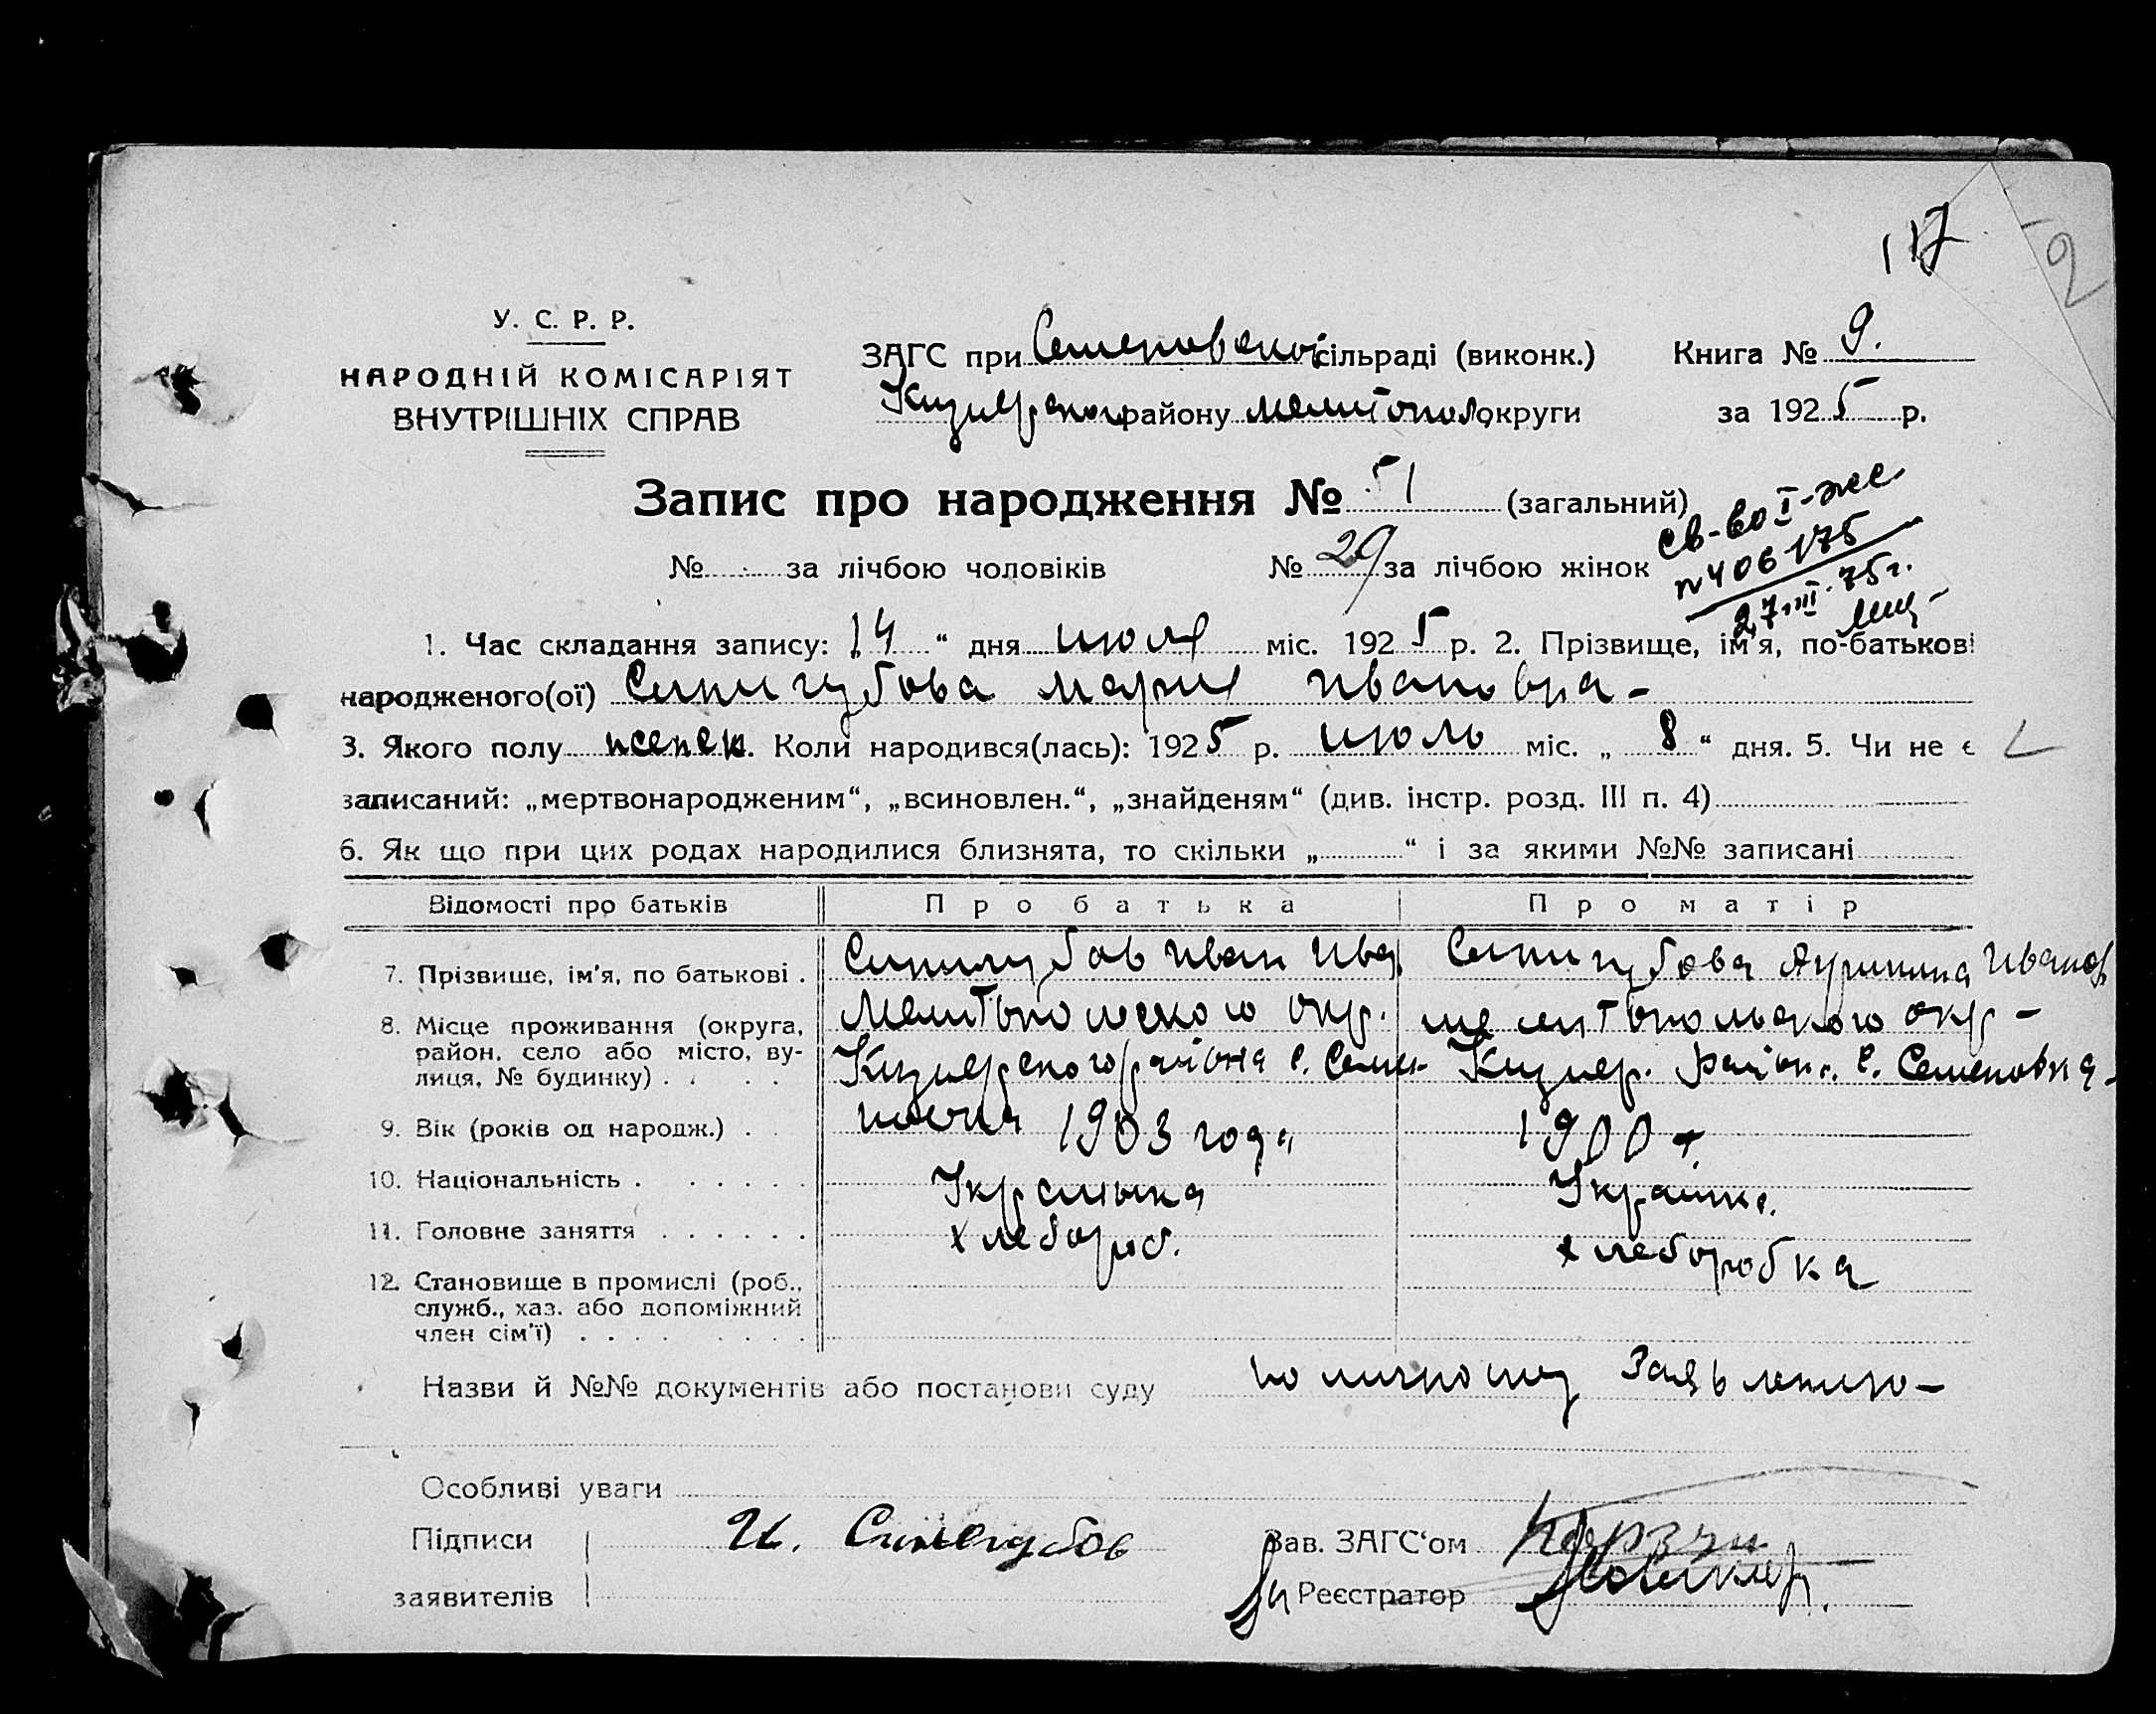 117
2
У. С. Р. Р.
НАРОДНІЙ КОМІСАРІЯТ
ВНУТРІШНІХ СПРАВ
ЗАГС при Семеновской сільраді (виконк.)
Кизиярского району мелитопол. округи
Книга № 9.
за 1925 р.
Запис про народження № 51 (загальний)
№ за лічбою чоловіків № 29 за лічбою жінок
св-во I-же
№ 406175
27.III.75г.
1. Час складання запису: „14“ дня июля міс. 1925 р. 2. Прізвище, ім'я, по-батькові
народженого(ої) Синигубова мария Ивановна-
3. Якого полу женск. Коли народився(лась): 1925 р. июль міс. „8“ дня. 5. Чи не є
записаний: „мертвонародженим“, „всиновлен.“, „знайденям“ (див. інстр. розд. III п. 4)
6. Як що при цих родах народилися близнята, то скільки „ “ і за якими №№ записані
Відомості про батьків Про батька Про матір
7. Прізвише, ім'я, по батькові . Синигубов Иван Ива Синигубова Ивано
8. Місце проживання (округа, район, село або місто, ву-лиця, № будинку) . . . .
Мелитопольского окр. мелитопольского окр-
Кизиярского района с. Семе- Кизияр. район. с. Семеновка-
новка
9. Вік (років од народж.) . . 1903 года 1900
10. Національність . . . . . Украинка
11. Головне заняття . . . . . . хлебороб. хлеборобка
12. Становище в промислі (роб.,
служб., хаз. або допоміжний
член сім'ї) . . . . . . . .
Назви й №№ документів або постанови суду по личному Заявлению-
Особливі уваги
Підписи
заявителів
И. Синегубов
Зав. ЗАГС'ом
Реєстратор